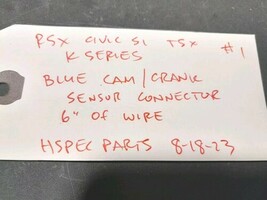 RSX CIVIC SI TSX #1
K SERIES
BLUE CAM/CRANK
SENSOR CONNECTOR
6" OF WIRE
HSPEC PARTS 8-18-23